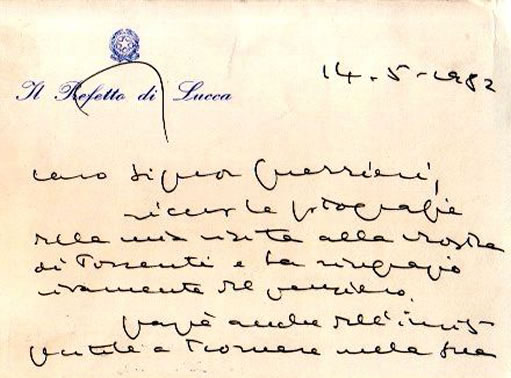 14.5.1982
Il Prefetto di Lucca
caro Signor Guerrieri,
ricevo le fotografie
della mia visita alla mostra
di Torrenti e La ringrazio
vivamente del pensiero.
grazie anche dell'invito
gentile a tornare nella Sua